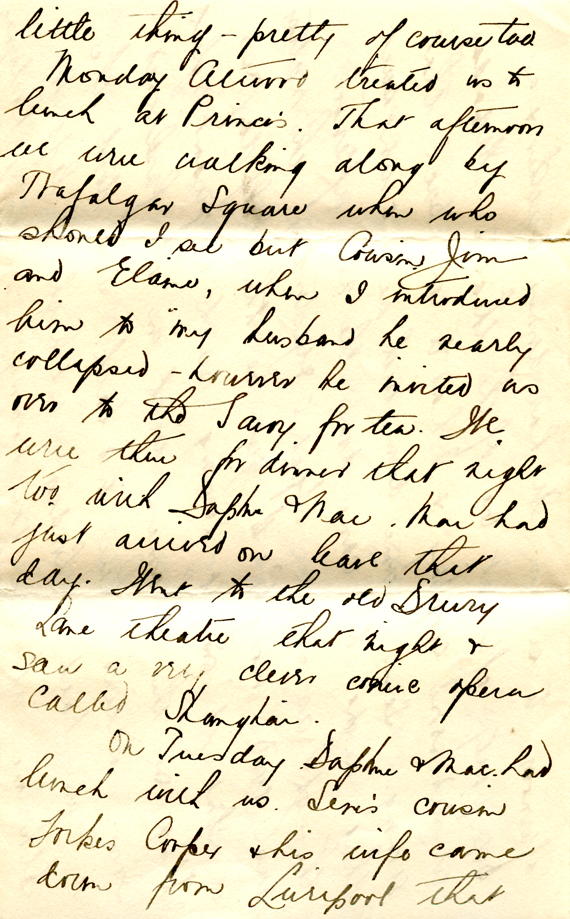 little thing - pretty of course too
Monday Atwood treated us to
lunch at Princes. That afternoon
we were walking along by
Trafalgar Square when who
should I see but Cousin Jim
and Elaine, when I introduced
him to "my husband he nearly
collapsed - however he invited us
over to the Savoy for tea. We
were there for dinner that night
too with Daphne & Mac. Mac had
just arrived on leave that
day. Went to the old Drury
Lane theatre that night &
saw a very clever comic opera
called Shanghai.
On Tuesday Daphne & Mac. had
lunch with us. cousin
Forbes Cooper & his wife came
down from Liverpool that